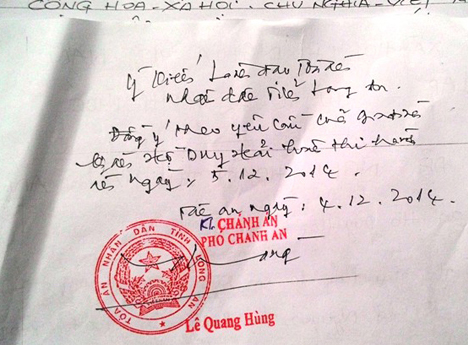 CỘNG HÒA - XÃ HỘI - CHỦ NGHĨA - VIỆT
Ý kiến Lãnh đạo Tòa án
nhân dân tỉnh Long An.
Đồng ý theo yêu cầu của
Duy Hải thi hành
án ngày: 5.12.2014.
Tân an, ngày: 4.12.2014.
KT. CHÁNH ÁN
PHÓ CHÁNH ÁN
TÒA ÁN NHÂN DÂN TỈNH LONG AN
Lê Quang Hùng